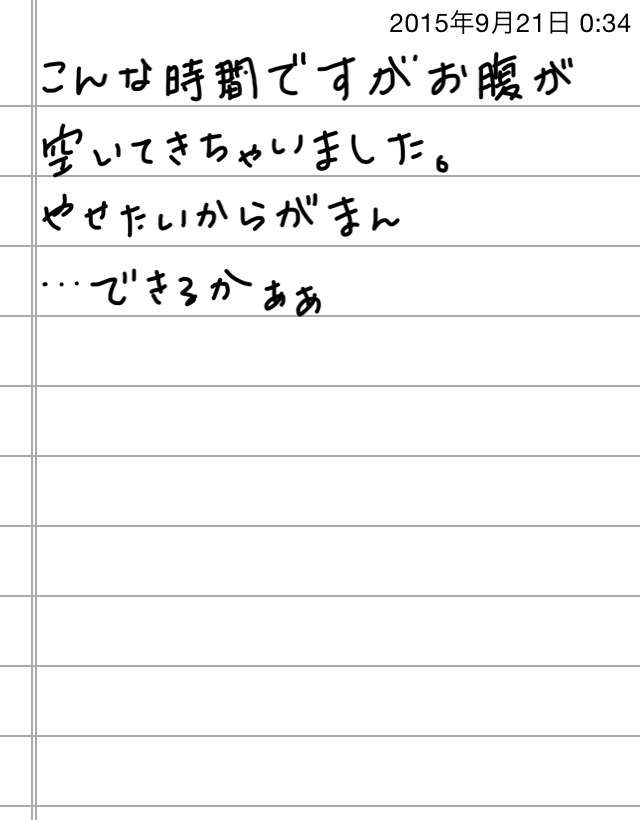 2015年9月21日 0:34
こんな時間ですがお腹が
空いてきちゃいました。
やせたいからがまん
…できるかぁぁ